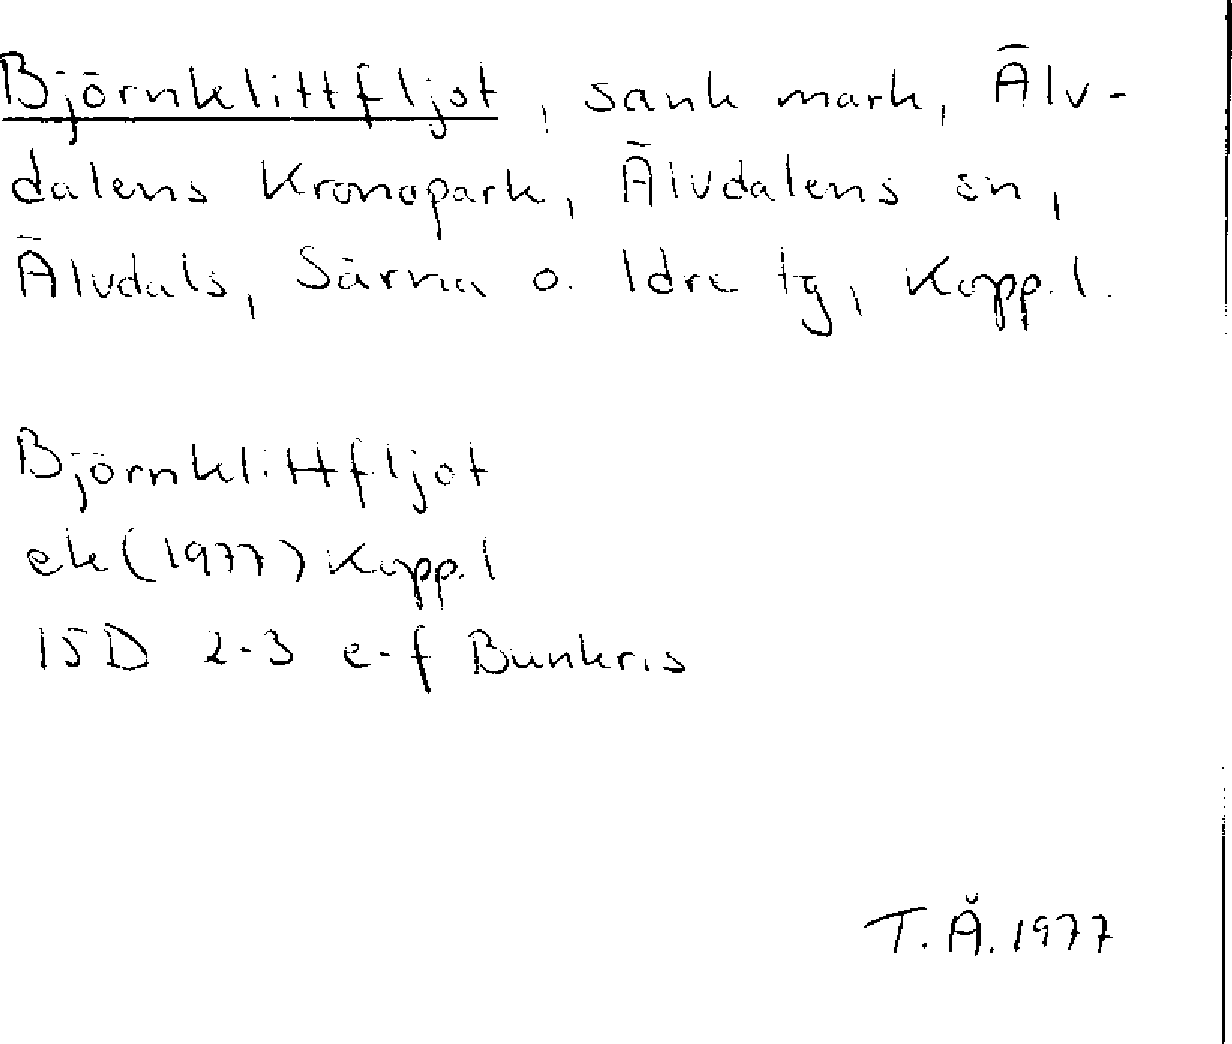 Björnklittfljot, sank mark, Älv-
dalens Kronopark, Älvdalens sn,
Älvdals, Särna o. Idre tg, Kopp.l.
Björnklittfljot
ek (1977) Kopp.l
15D 2-3 e-f Bunkris
T.Å. 1977